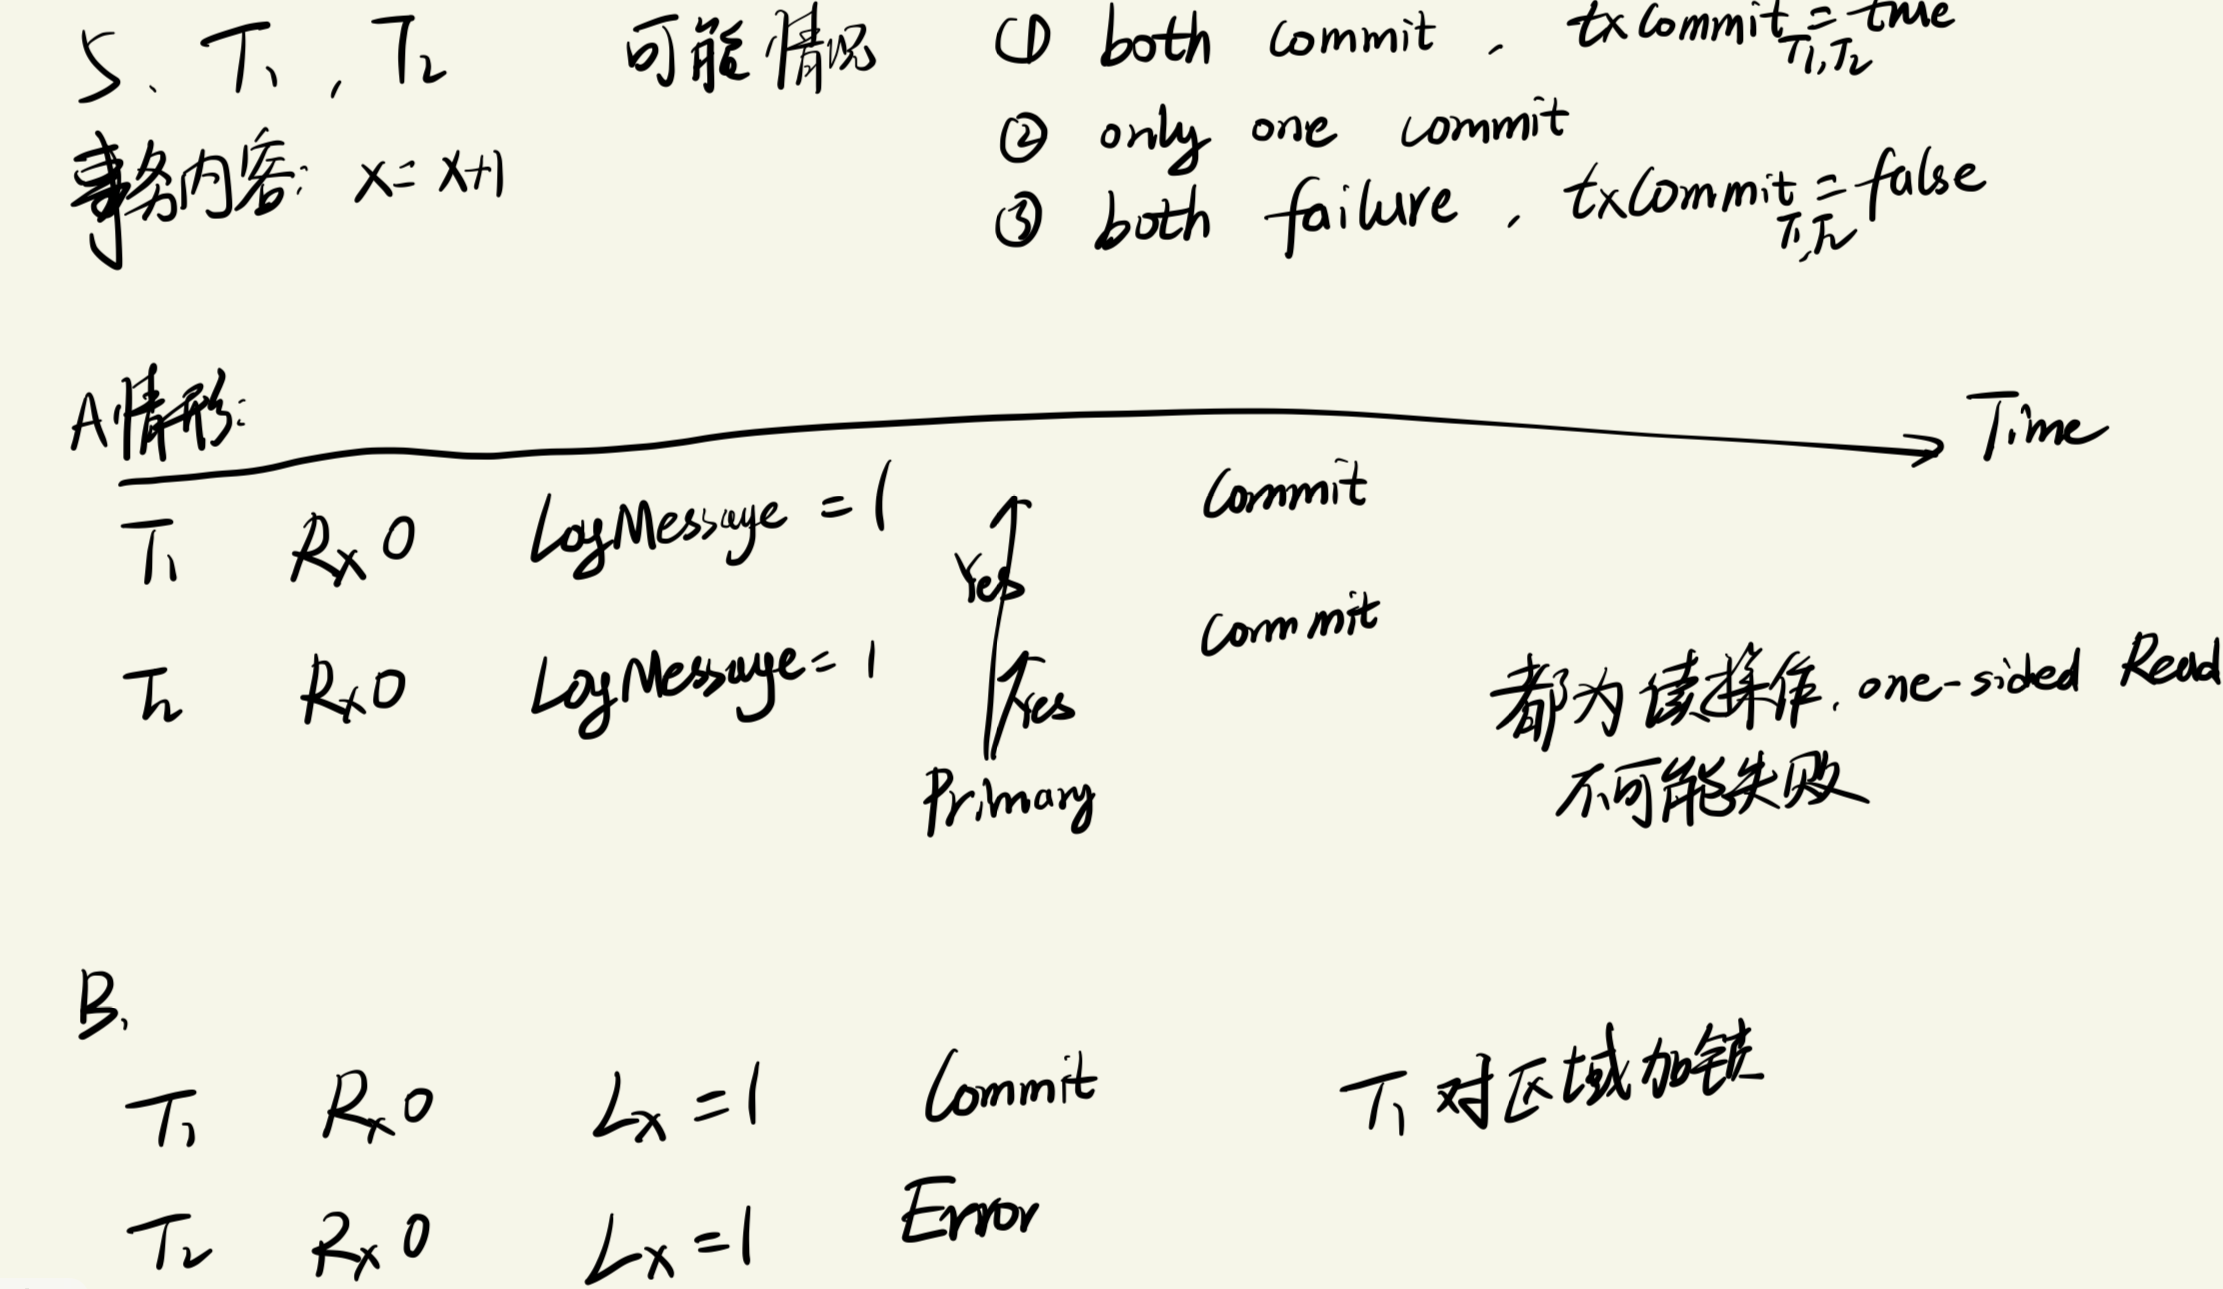 5、T1，T2 可能情况 ① both commit, txCommit T1,T2 = true
② only one commit
事务内容: x = x+1
③ both failure, txCommit T1,T2 = false
A情形:
Time
T1 Rx0 LogMessage = 1 Yes Commit
T2 Rx0 LogMessage = 1 Yes Commit
都为读操作, one-sided Read
不可能失败
Primary
B.
T1 Rx0 Lx = 1 Commit T1对区域加锁
T2 Rx0 Lx = 1 Error